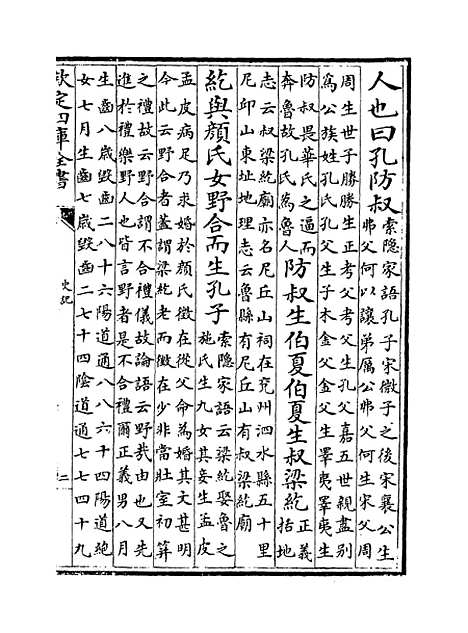 人也曰孔防叔
索隱家語孔子宋微子之後宋襄公生
弗父何以讓弟厲公弗父何生宋父周
周生世子勝勝生正考父考父生孔父嘉五世親盡别
為公族姓孔氏孔父生子木金父金父生睪夷睪夷生
防叔畏華氏之逼而
奔魯故孔氏為魯人
防叔生伯夏伯夏生叔梁紇
正義
括地
志云叔梁紇廟亦名尼丘山祠在兖州泗水縣五十里
尼邱山東址地理志云魯縣有尼丘山有叔梁紇廟
紇與顔氏女野合而生孔子
索隱家語云梁紇娶魯之
施氏生九女其妾生孟皮
孟皮病足乃求婚於顔氏徵在從父命為婚其文甚明
今此云野合者葢謂梁紇老而徵在少非當壯室初筭
之禮故云野合謂不合禮儀故論語云野哉由也又先
進於禮樂野人也皆言野者是不合禮爾正義男八月
生齒八歳毁齒二八十六陽道通八八六十四陽道絶
女七月生齒七歳毁齒二七十四隂道通七七四十九
欽定四庫全書
史記
二